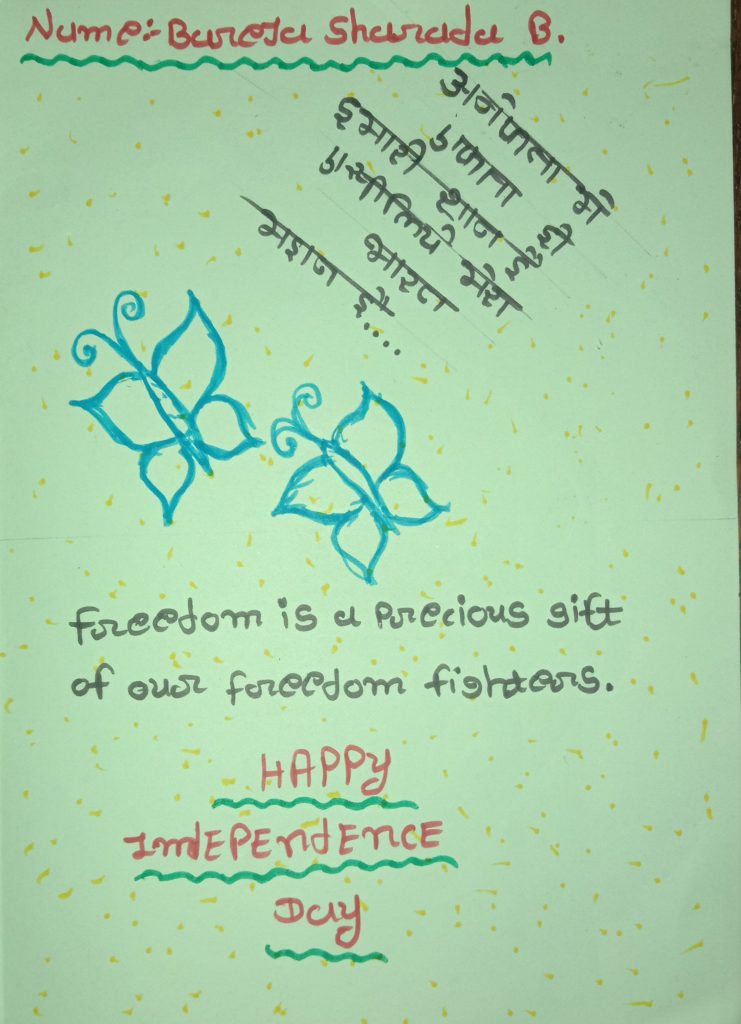 Name:- Bareja Sharada B.
अनेकता में
एकता ही
हमारी शान है
इसीलिये मेरा
भारत
महान है....
Freedom is a precious gift
of our freedom fighters.
HAPPy
IndEPEndEnCE
Day